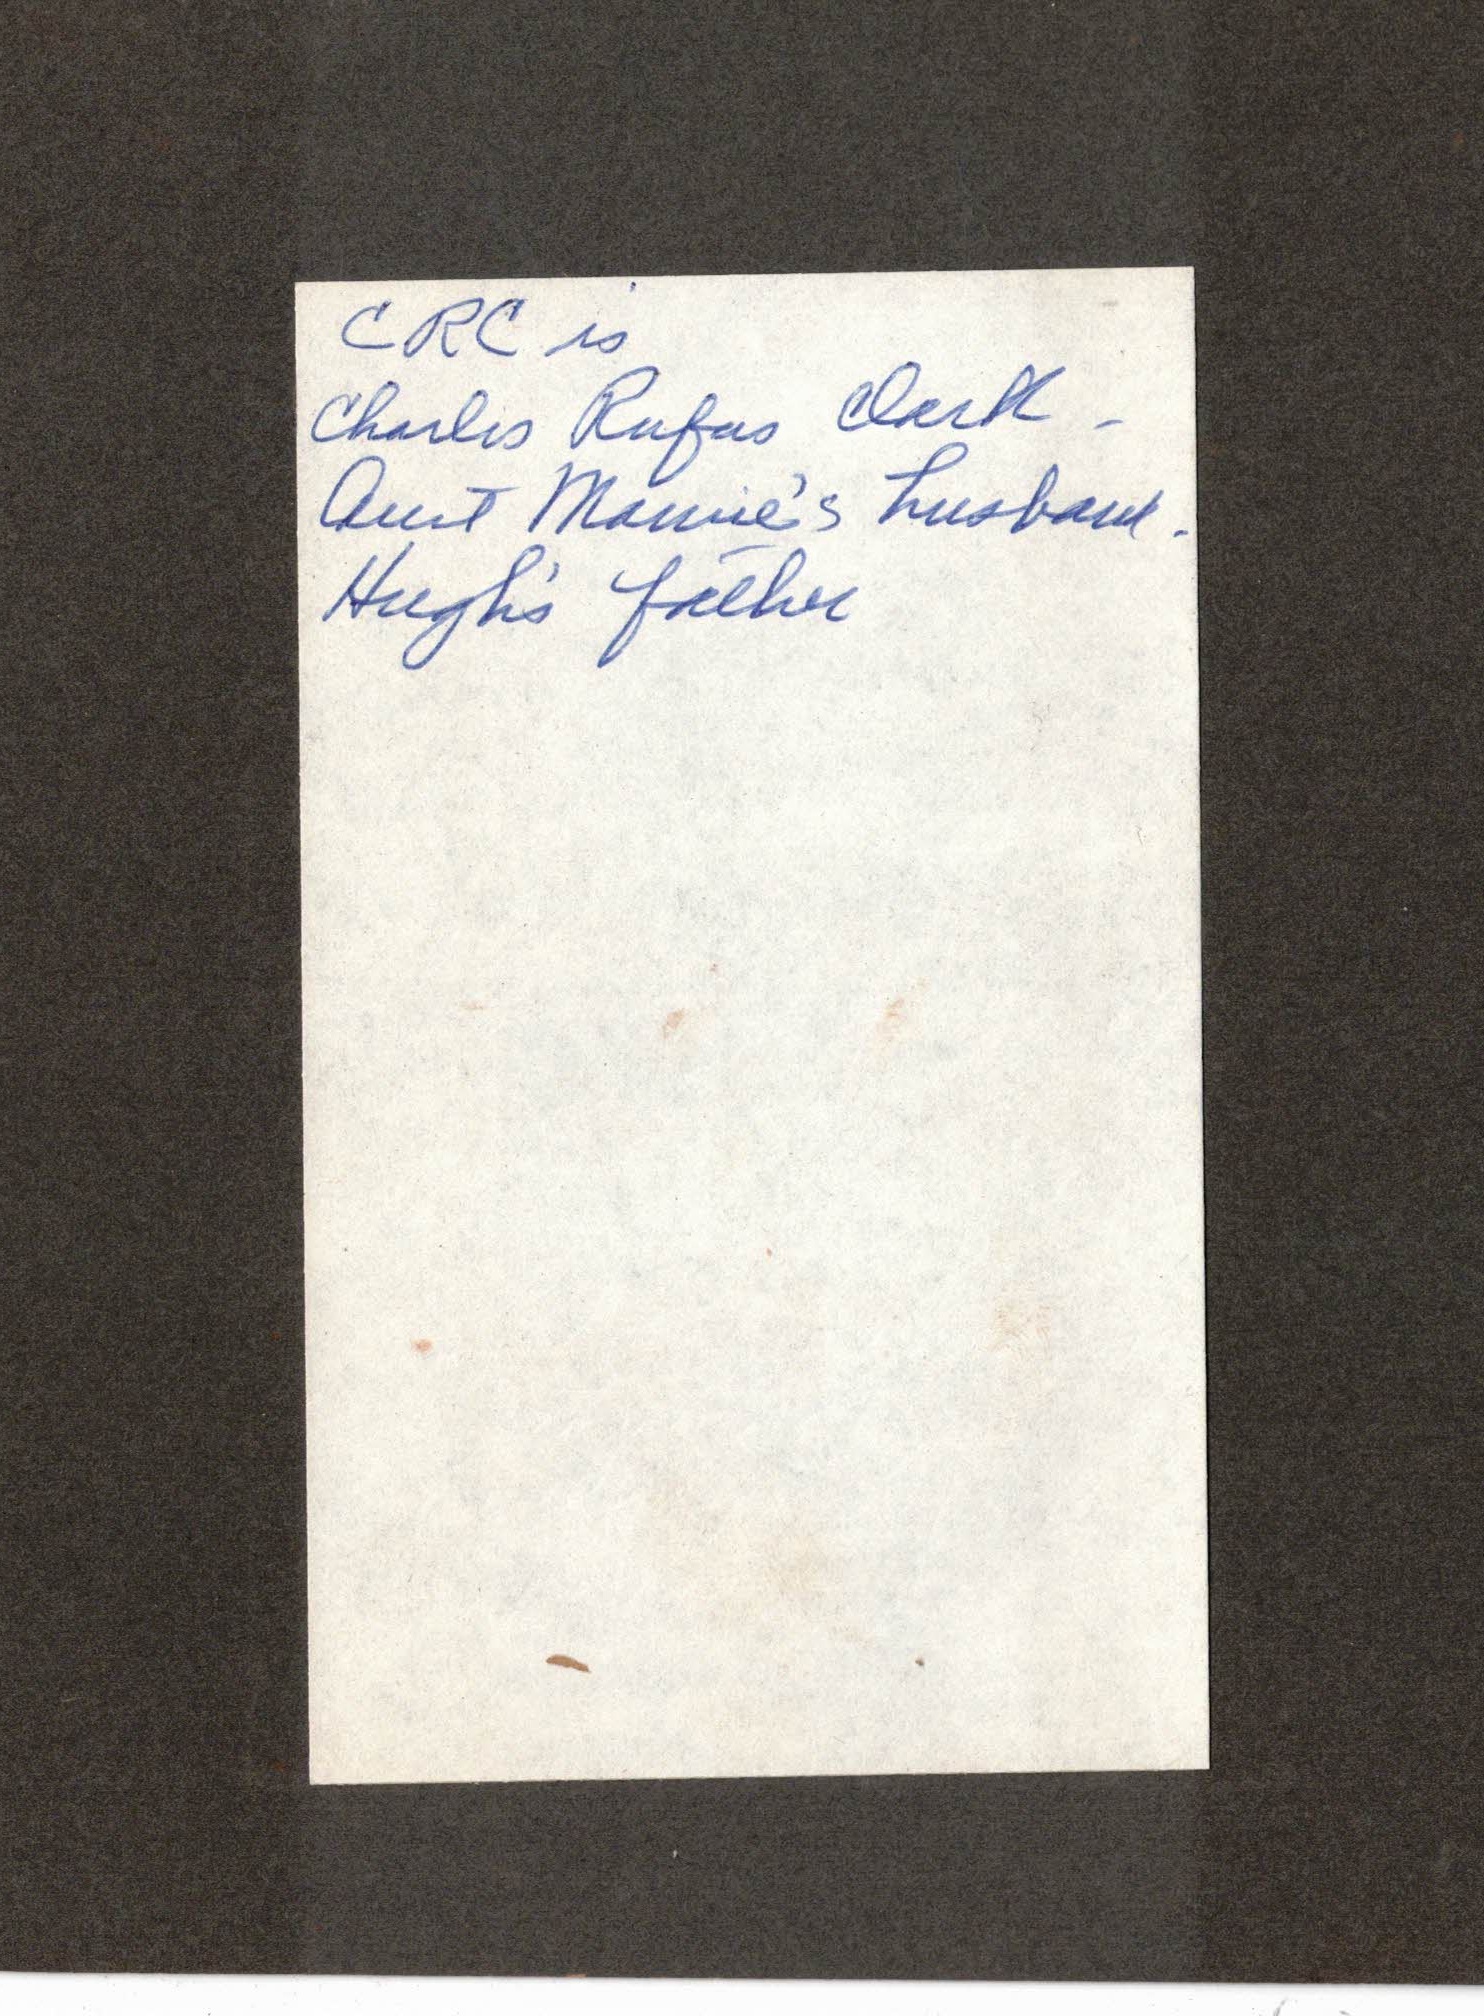 CRC is
Charles Rufus Clark -
Aunt Mamie's husband.
Hugh's father